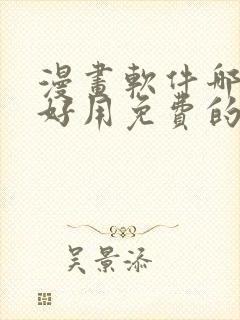 漫畫軟件哪
好用免費的
吴景添